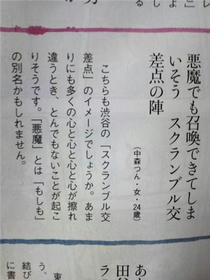 悪魔でも召喚できてしま
いそう スクランブル交
差点の陣
（中森つん・女・24歳）
こちらも渋谷の「スクランブル交
差点」のイメージでしょうか。あま
りにも多くの心と心と心と心が擦れ
違うとき、とんでもないことが起こ
りそうです。「悪魔」とは「もしも」
の別名かもしれません。